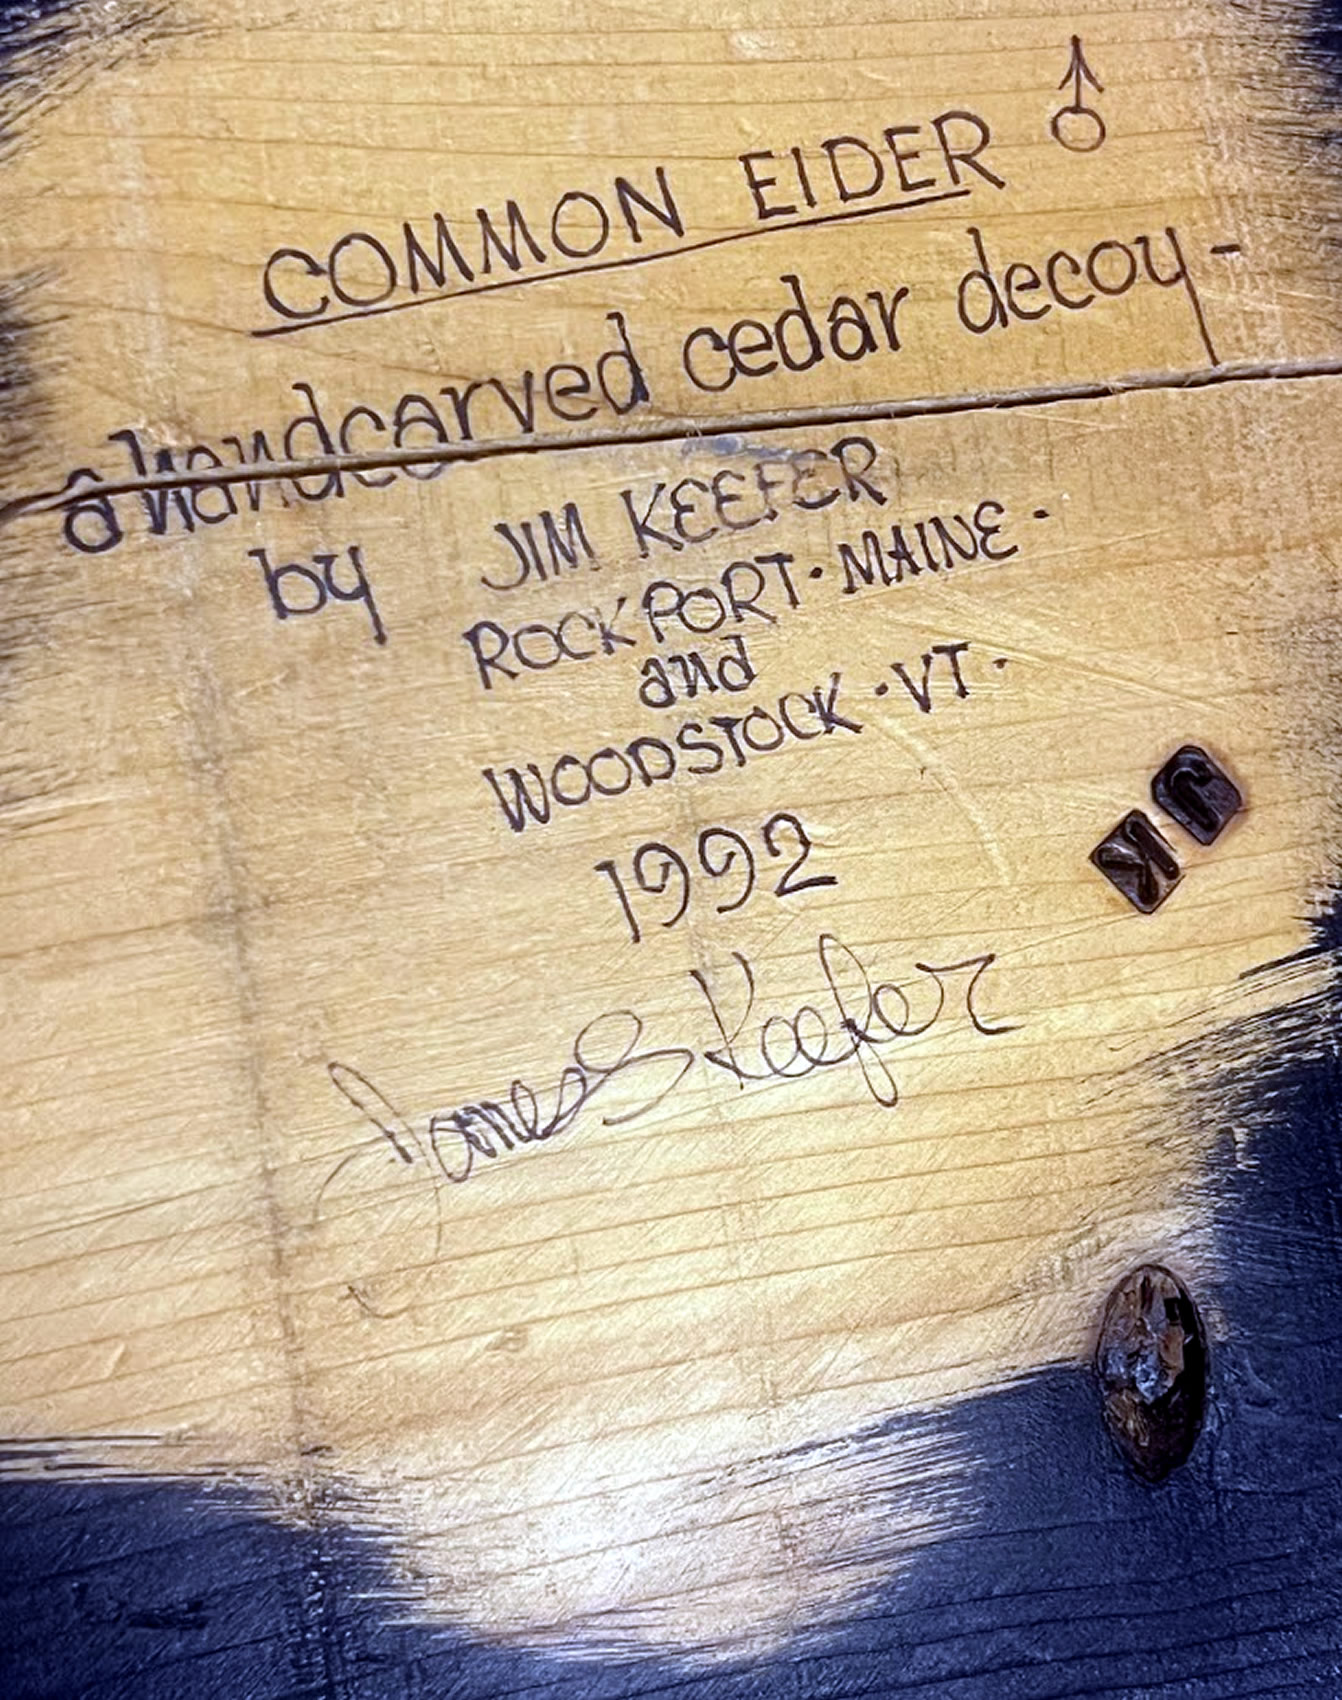 COMMON EIDER ♂
a handcarved cedar decoy -
by JIM KEEFER
ROCKPORT · MAINE ·
and
WOODSTOCK · VT ·
1992
James S Keefer
J K